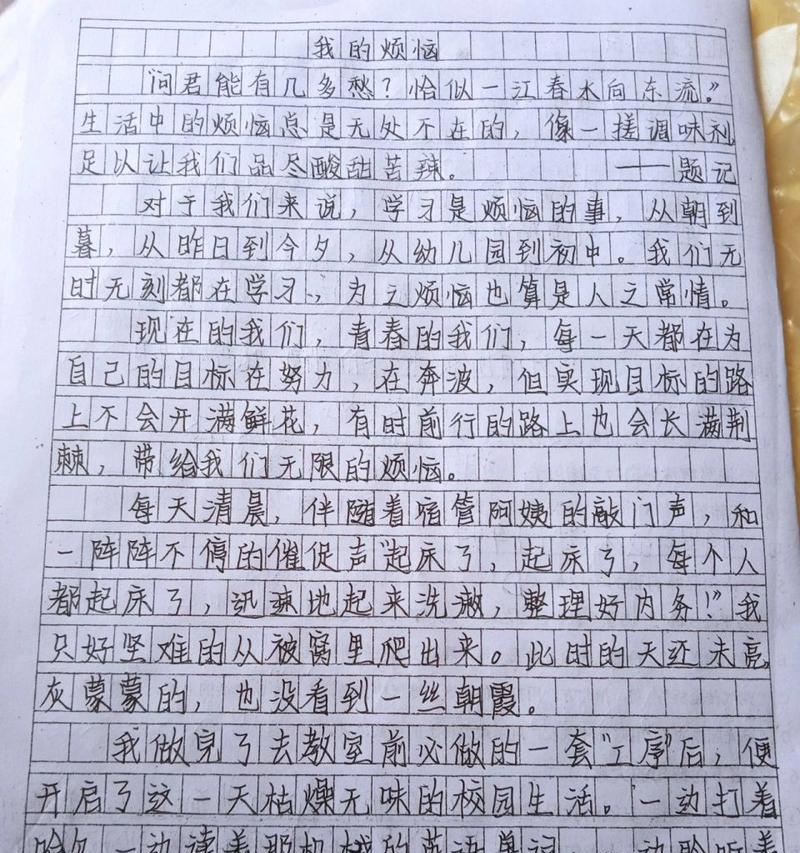 我的烦恼
“问君能有几多愁？恰似一江春水向东流。”
生活中的烦恼总是无处不在的，像一搓调味剂
足以让我们品尽酸甜苦辣。 ——题记
对于我们来说，学习是烦恼的事，从朝到
暮，从昨日到今夕，从幼儿园到初中。我们无
时无刻都在学习，为之烦恼也算是人之常情。
现在的我们，青春的我们，每一天都在为
自己的目标在努力，在奔波，但实现目标的路
上不会开满鲜花，有时前行的路上也会长满荆
棘，带给我们无限的烦恼。
每天清晨，伴随着宿管阿姨的敲门声，和
一阵阵不停的催促声“起床了，起床了，每个人
都起床了，迅速地起来洗漱，整理好内务！”我
只好坚难的从被窝里爬出来。此时的天还未亮，
灰蒙蒙的，也没看到一丝朝霞。
我做完了去教室前必做的一套“工序”后，便
开启了这一天枯燥无味的校园生活。一边打着
哈欠一边读着那机械的英语单词，一边聆听着